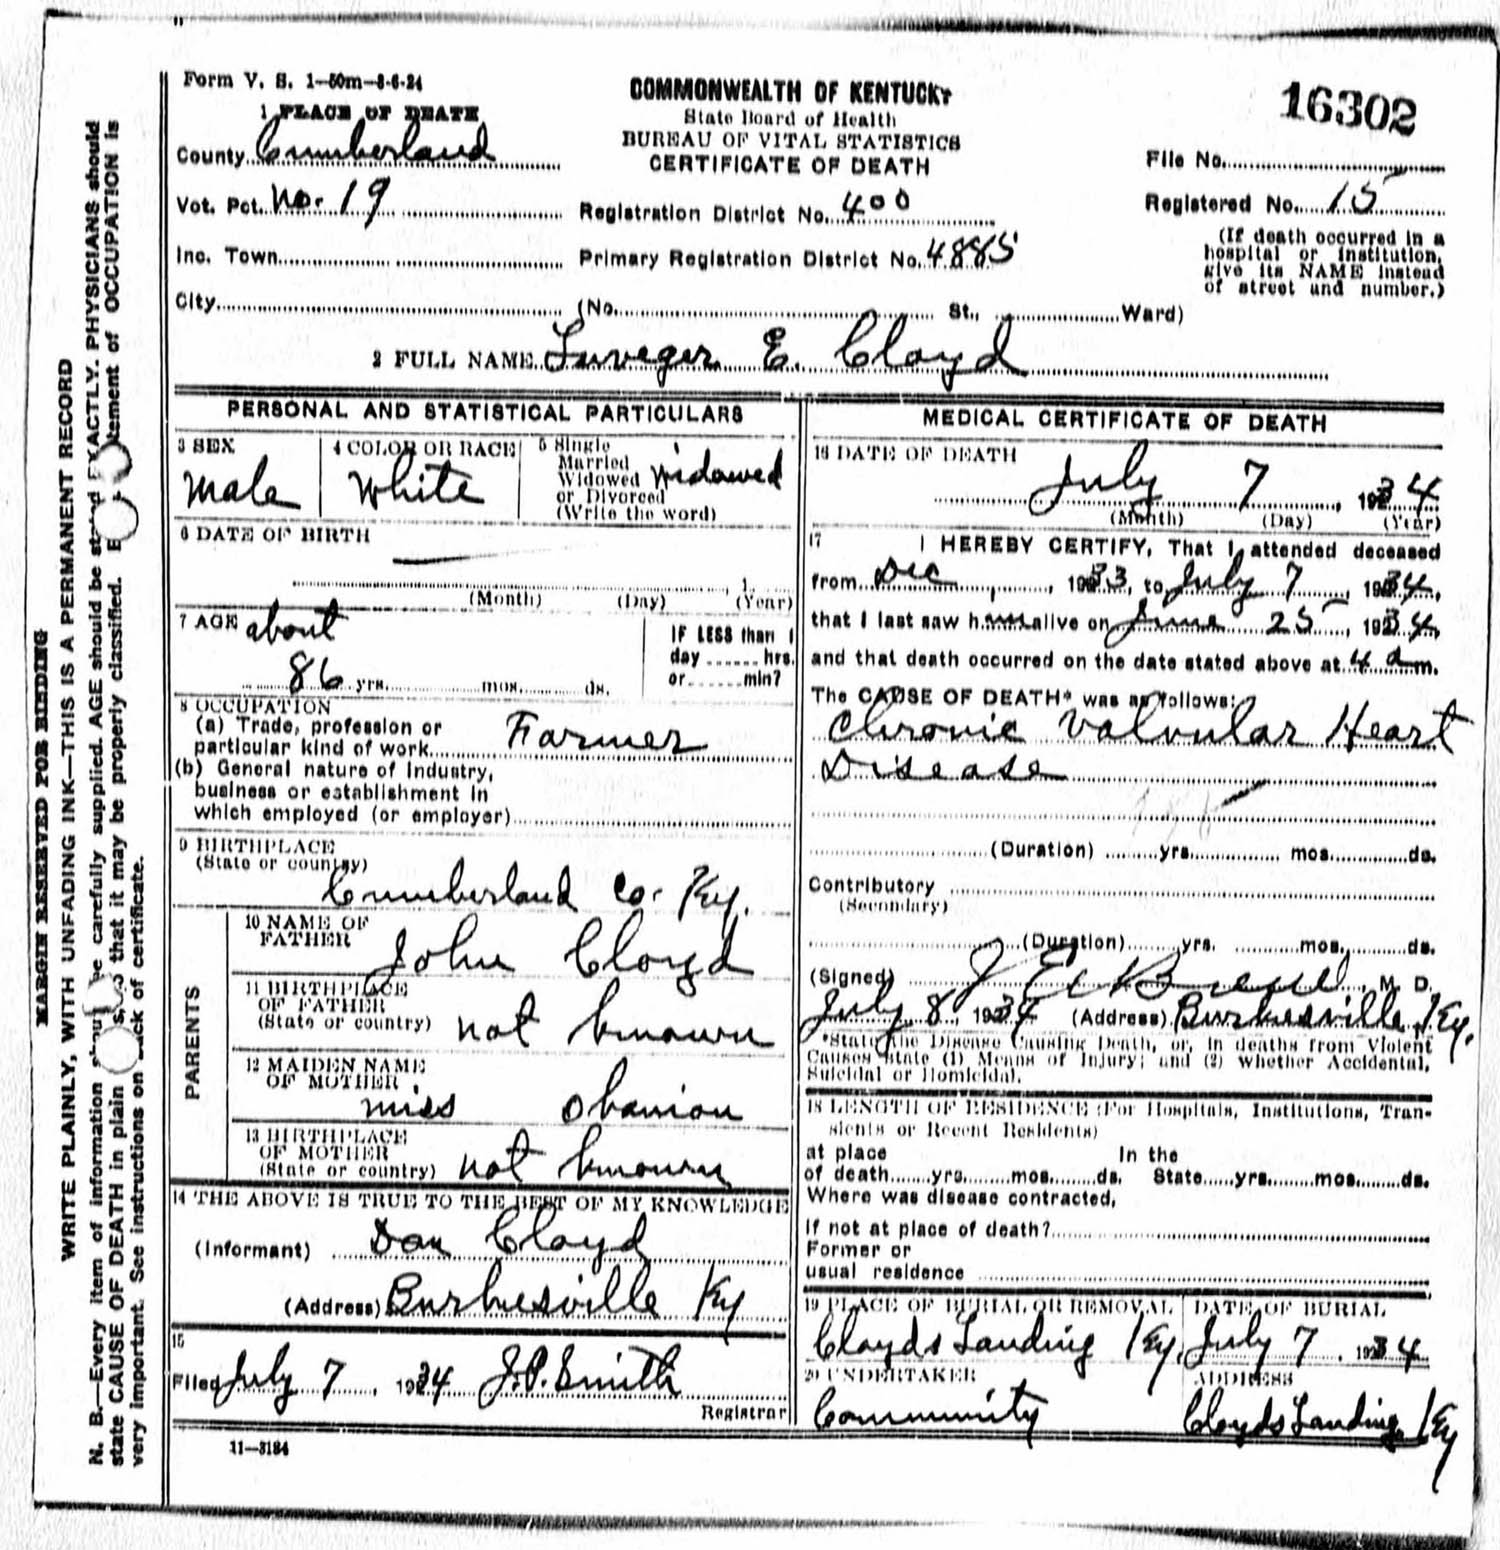 Form V. S. 1—50m—8-6-24
COMMONWEALTH OF KENTUCKY
State Board of Health
BUREAU OF VITAL STATISTICS
CERTIFICATE OF DEATH
16302
1 PLACE OF DEATH
County Cumberland
File No.
Vot. Pct. No. 19
Registration District No. 400
Registered No. 15
Inc. Town
Primary Registration District No. 4885
(If death occurred in a
hospital or institution,
give its NAME instead
of street and number.)
City (No. St., Ward)
2 FULL NAME E. Cloyd
PERSONAL AND STATISTICAL PARTICULARS
3 SEX
Male
4 COLOR OR RACE
White
5 Single
Married
Widowed
or Divorced
(Write the word)
Widowed
6 DATE OF BIRTH
(Month) (Day) (Year)
7 AGE about
86 yrs. mos. ds.
IF LESS than 1
day hrs.
or min?
8 OCCUPATION
(a) Trade, profession or
particular kind of work Farmer
(b) General nature of Industry,
business or establishment in
which employed (or employer)
9 BIRTHPLACE
(State or country)
Cumberland Co. Ky.
PARENTS
10 NAME OF
FATHER
John Cloyd
11 BIRTHPLACE
OF FATHER
(State or country) not known
12 MAIDEN NAME
OF MOTHER
miss Obanion
13 BIRTHPLACE
OF MOTHER
(State or country) not known
14 THE ABOVE IS TRUE TO THE BEST OF MY KNOWLEDGE
(Informant) Dan Cloyd
(Address) Burkesville Ky
15
Filed July 7, 1934 J.P. Smith
Registrar
11—3184
MEDICAL CERTIFICATE OF DEATH
16 DATE OF DEATH
July 7, 1934
(Month) (Day) (Year)
17 I HEREBY CERTIFY, That I attended deceased
from Dec, 1933, to July 7, 1934,
that I last saw him alive on June 25, 1934,
and that death occurred on the date stated above at 4 a m.
The CAUSE OF DEATH* was as follows:
Chronic Valvular Heart
Disease
(Duration) yrs. mos. ds.
Contributory
(Secondary)
(Duration) yrs. mos. ds.
(Signed) M. D.
July 8, 1934 (Address) Burkesville, Ky.
*State the Disease Causing Death, or, in deaths from Violent
Causes state (1) Means of Injury; and (2) whether Accidental,
Suicidal or Homicidal.
18 LENGTH OF RESIDENCE (For Hospitals, Institutions, Tran-
sients or Recent Residents)
at place In the
of death yrs. mos. ds. State yrs. mos. ds.
Where was disease contracted,
If not at place of death?
Former or
usual residence
19 PLACE OF BURIAL OR REMOVAL
Cloyds Landing Ky.
DATE OF BURIAL
July 7, 1934
20 UNDERTAKER
Community
ADDRESS
Cloyds Landing Ky
MARGIN RESERVED FOR BINDING
WRITE PLAINLY, WITH UNFADING INK—THIS IS A PERMANENT RECORD
N. B.—Every item of information carefully supplied. AGE should be EXACTLY. PHYSICIANS should
state CAUSE OF DEATH in plain that it may be properly classified. of OCCUPATION is
very important. See instructions on of certificate.